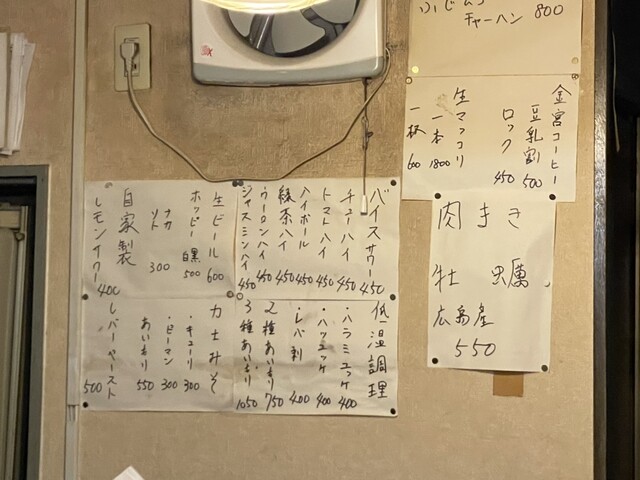 チャーハン 800
金宮コーヒー
豆乳割 500
ロック 450
生マッコリ
一本 1800
一杯 600
肉まき
牡蠣
広島産
550
バイスサワー 450
チューハイ 450
トマトハイ 450
ハイボール 450
緑茶ハイ 450
ウーロンハイ 450
ジャスミンハイ 450
生ビール 600
ホッピー 白黒 500
ナカ 300
ソト
自家製
レモンサワー 400
低温調理
・ハラミユッケ 400
・ハツユッケ 400
・レバ刺 400
2種あいもり 750
3種あいもり 1050
力士みそ
・キューリ 300
・ピーマン 300
あいもり 550
レバーペースト 500